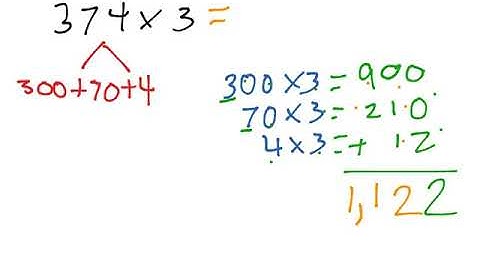 374 x 3 =
300+70+4
300 x 3 = 900
70 x 3 = 210
4 x 3 = + 12
1,122